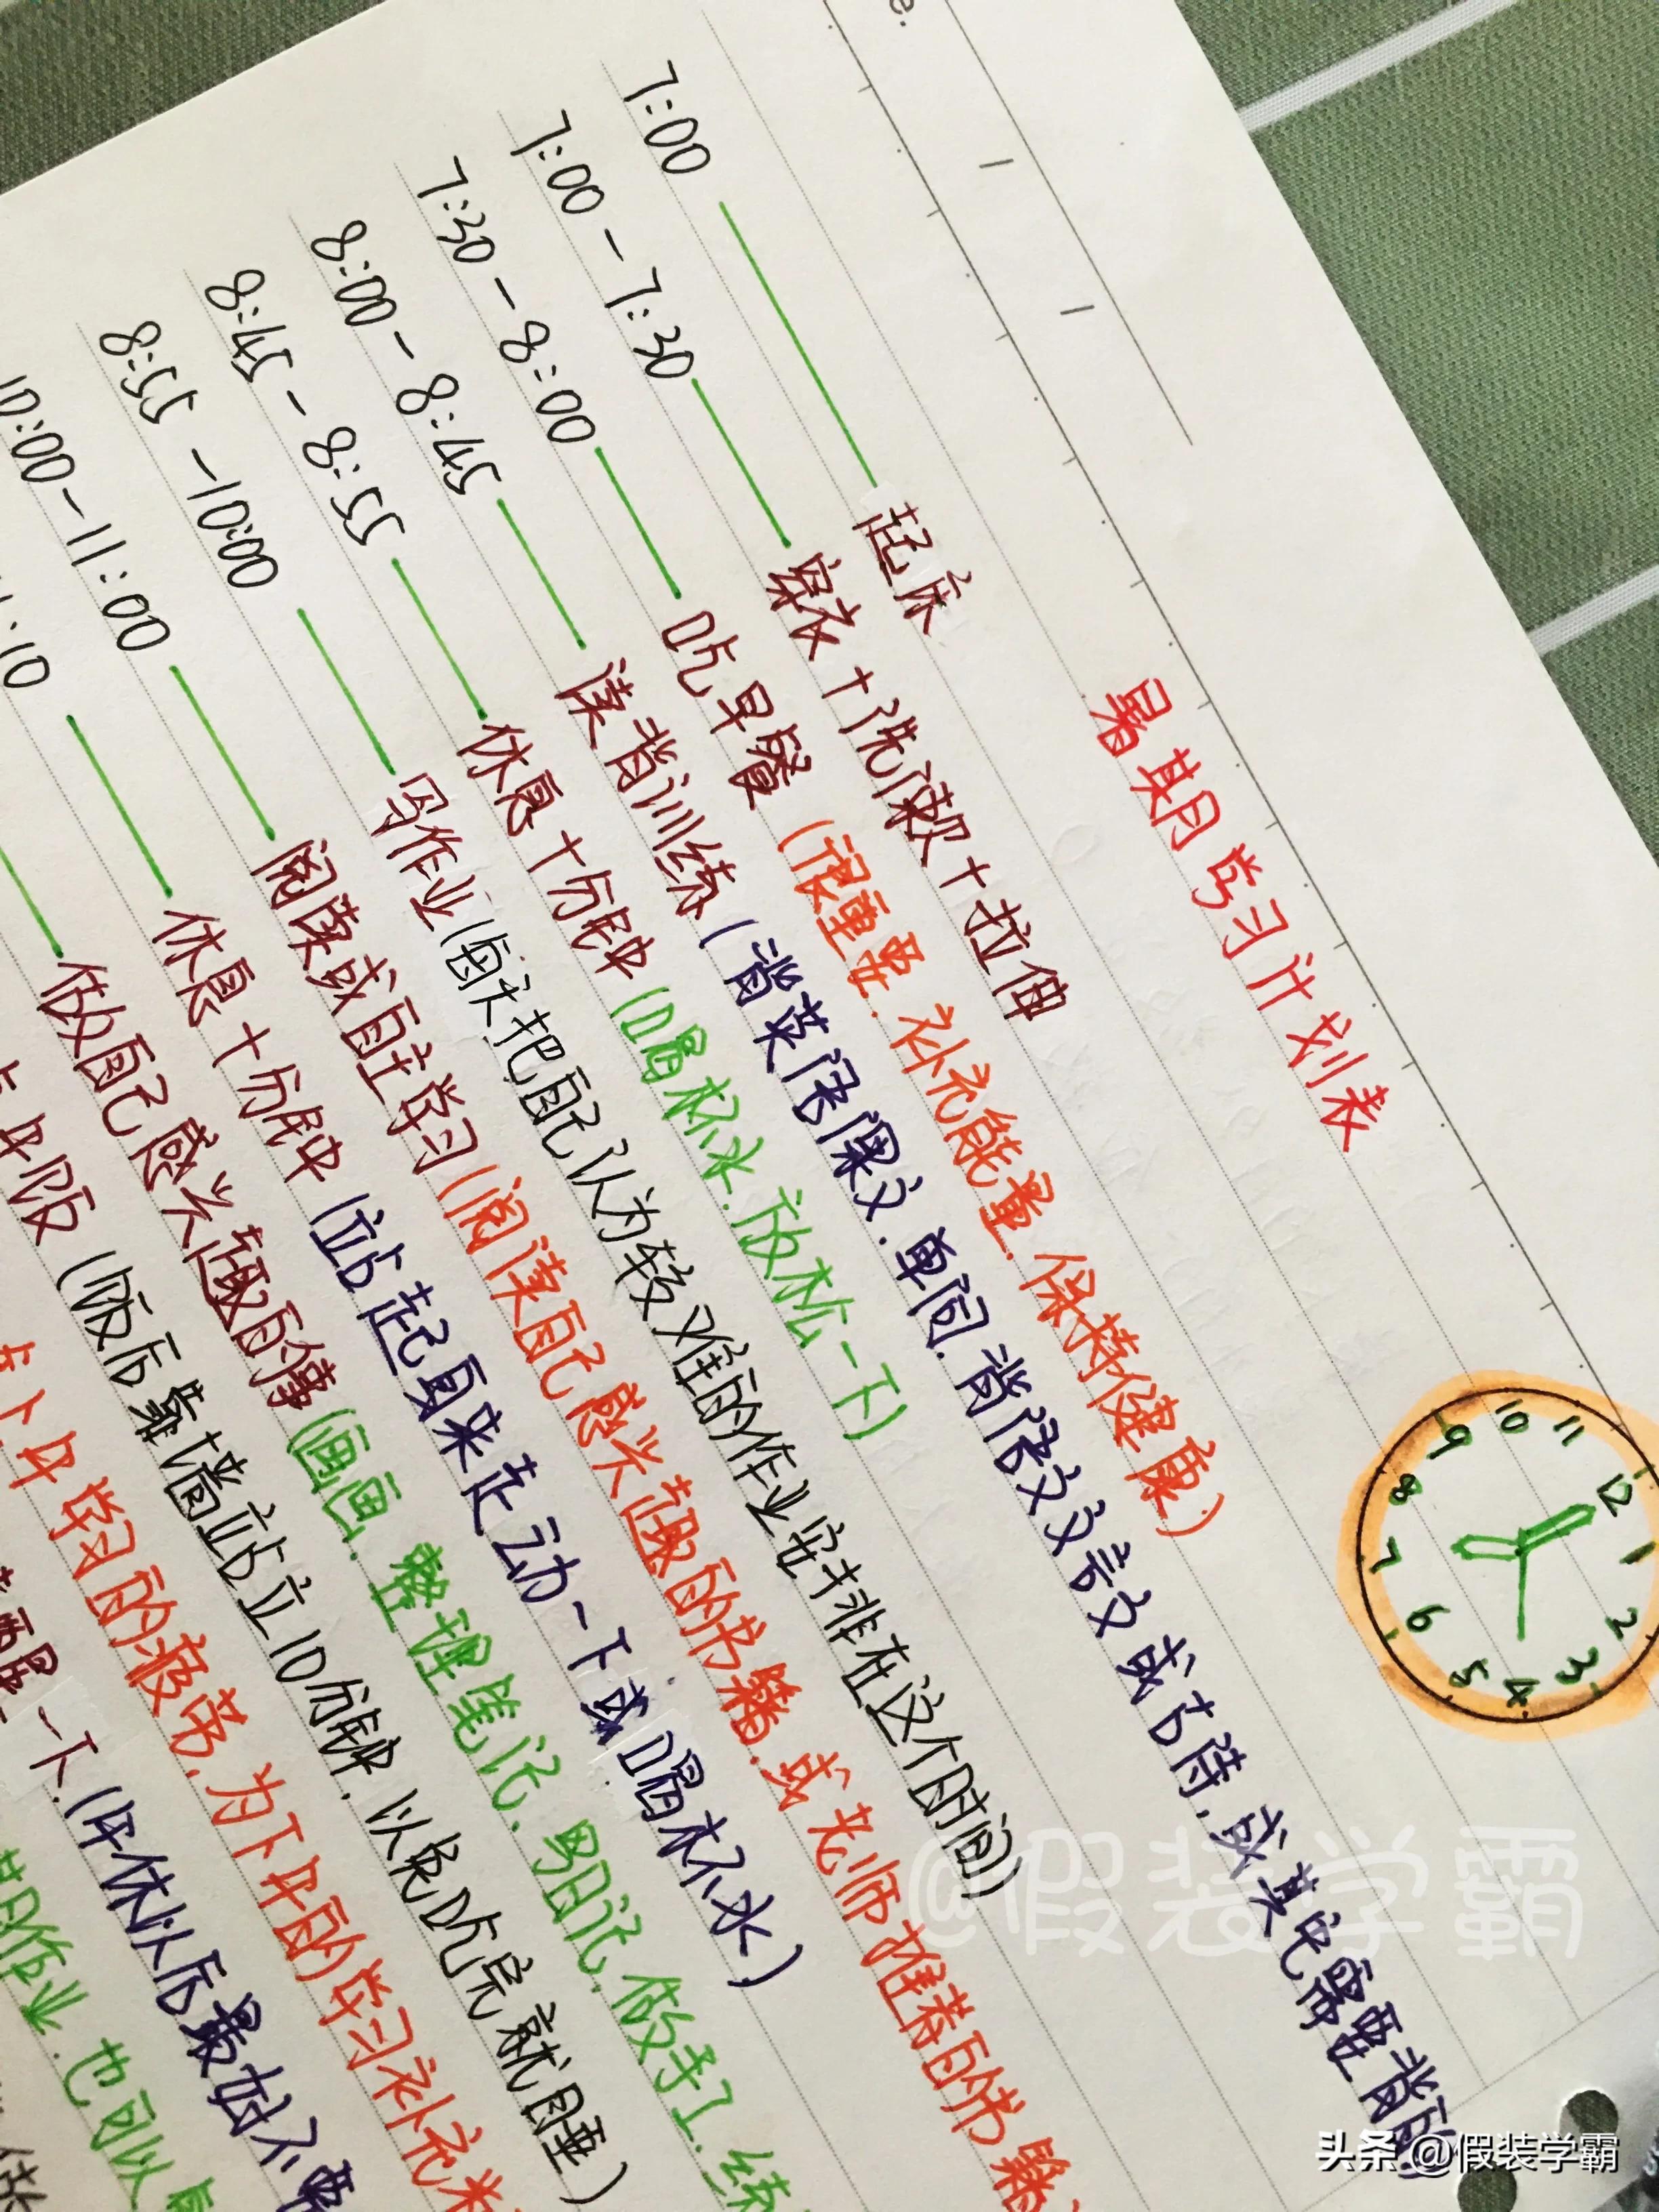 暑期学习计划表
7:00 起床
7:00-7:30 穿衣+洗漱+拉伸
7:30-8:00 吃早餐(很重要.补充能量.保持健康)
8:00-8:45 读背训练(背英语课文.单词.背语文文言文或古诗.或其它需要背的
8:45-8:55 休息十分钟(喝杯水.放松一下)
8:55-10:00 写作业(每天把自己认为较难的作业安排在这个时间)
10:00-11:00 阅读或自主学习(阅读自己感兴趣的书籍.或老师推荐的书籍
:10 休息十分钟(站起身来走动一下或喝杯水)
做自己感兴趣的事(画画.整理笔记.写日记.做手工.练
午饭(饭后靠墙站立10分钟.以免吃完就睡)
上午学习的疲劳.为下午的学习补充
一下.(午休以后最好不要
作业.也可以
12
1
2
3
4
5
6
7
8
9
10
11
@假装学霸
头条@假装学霸